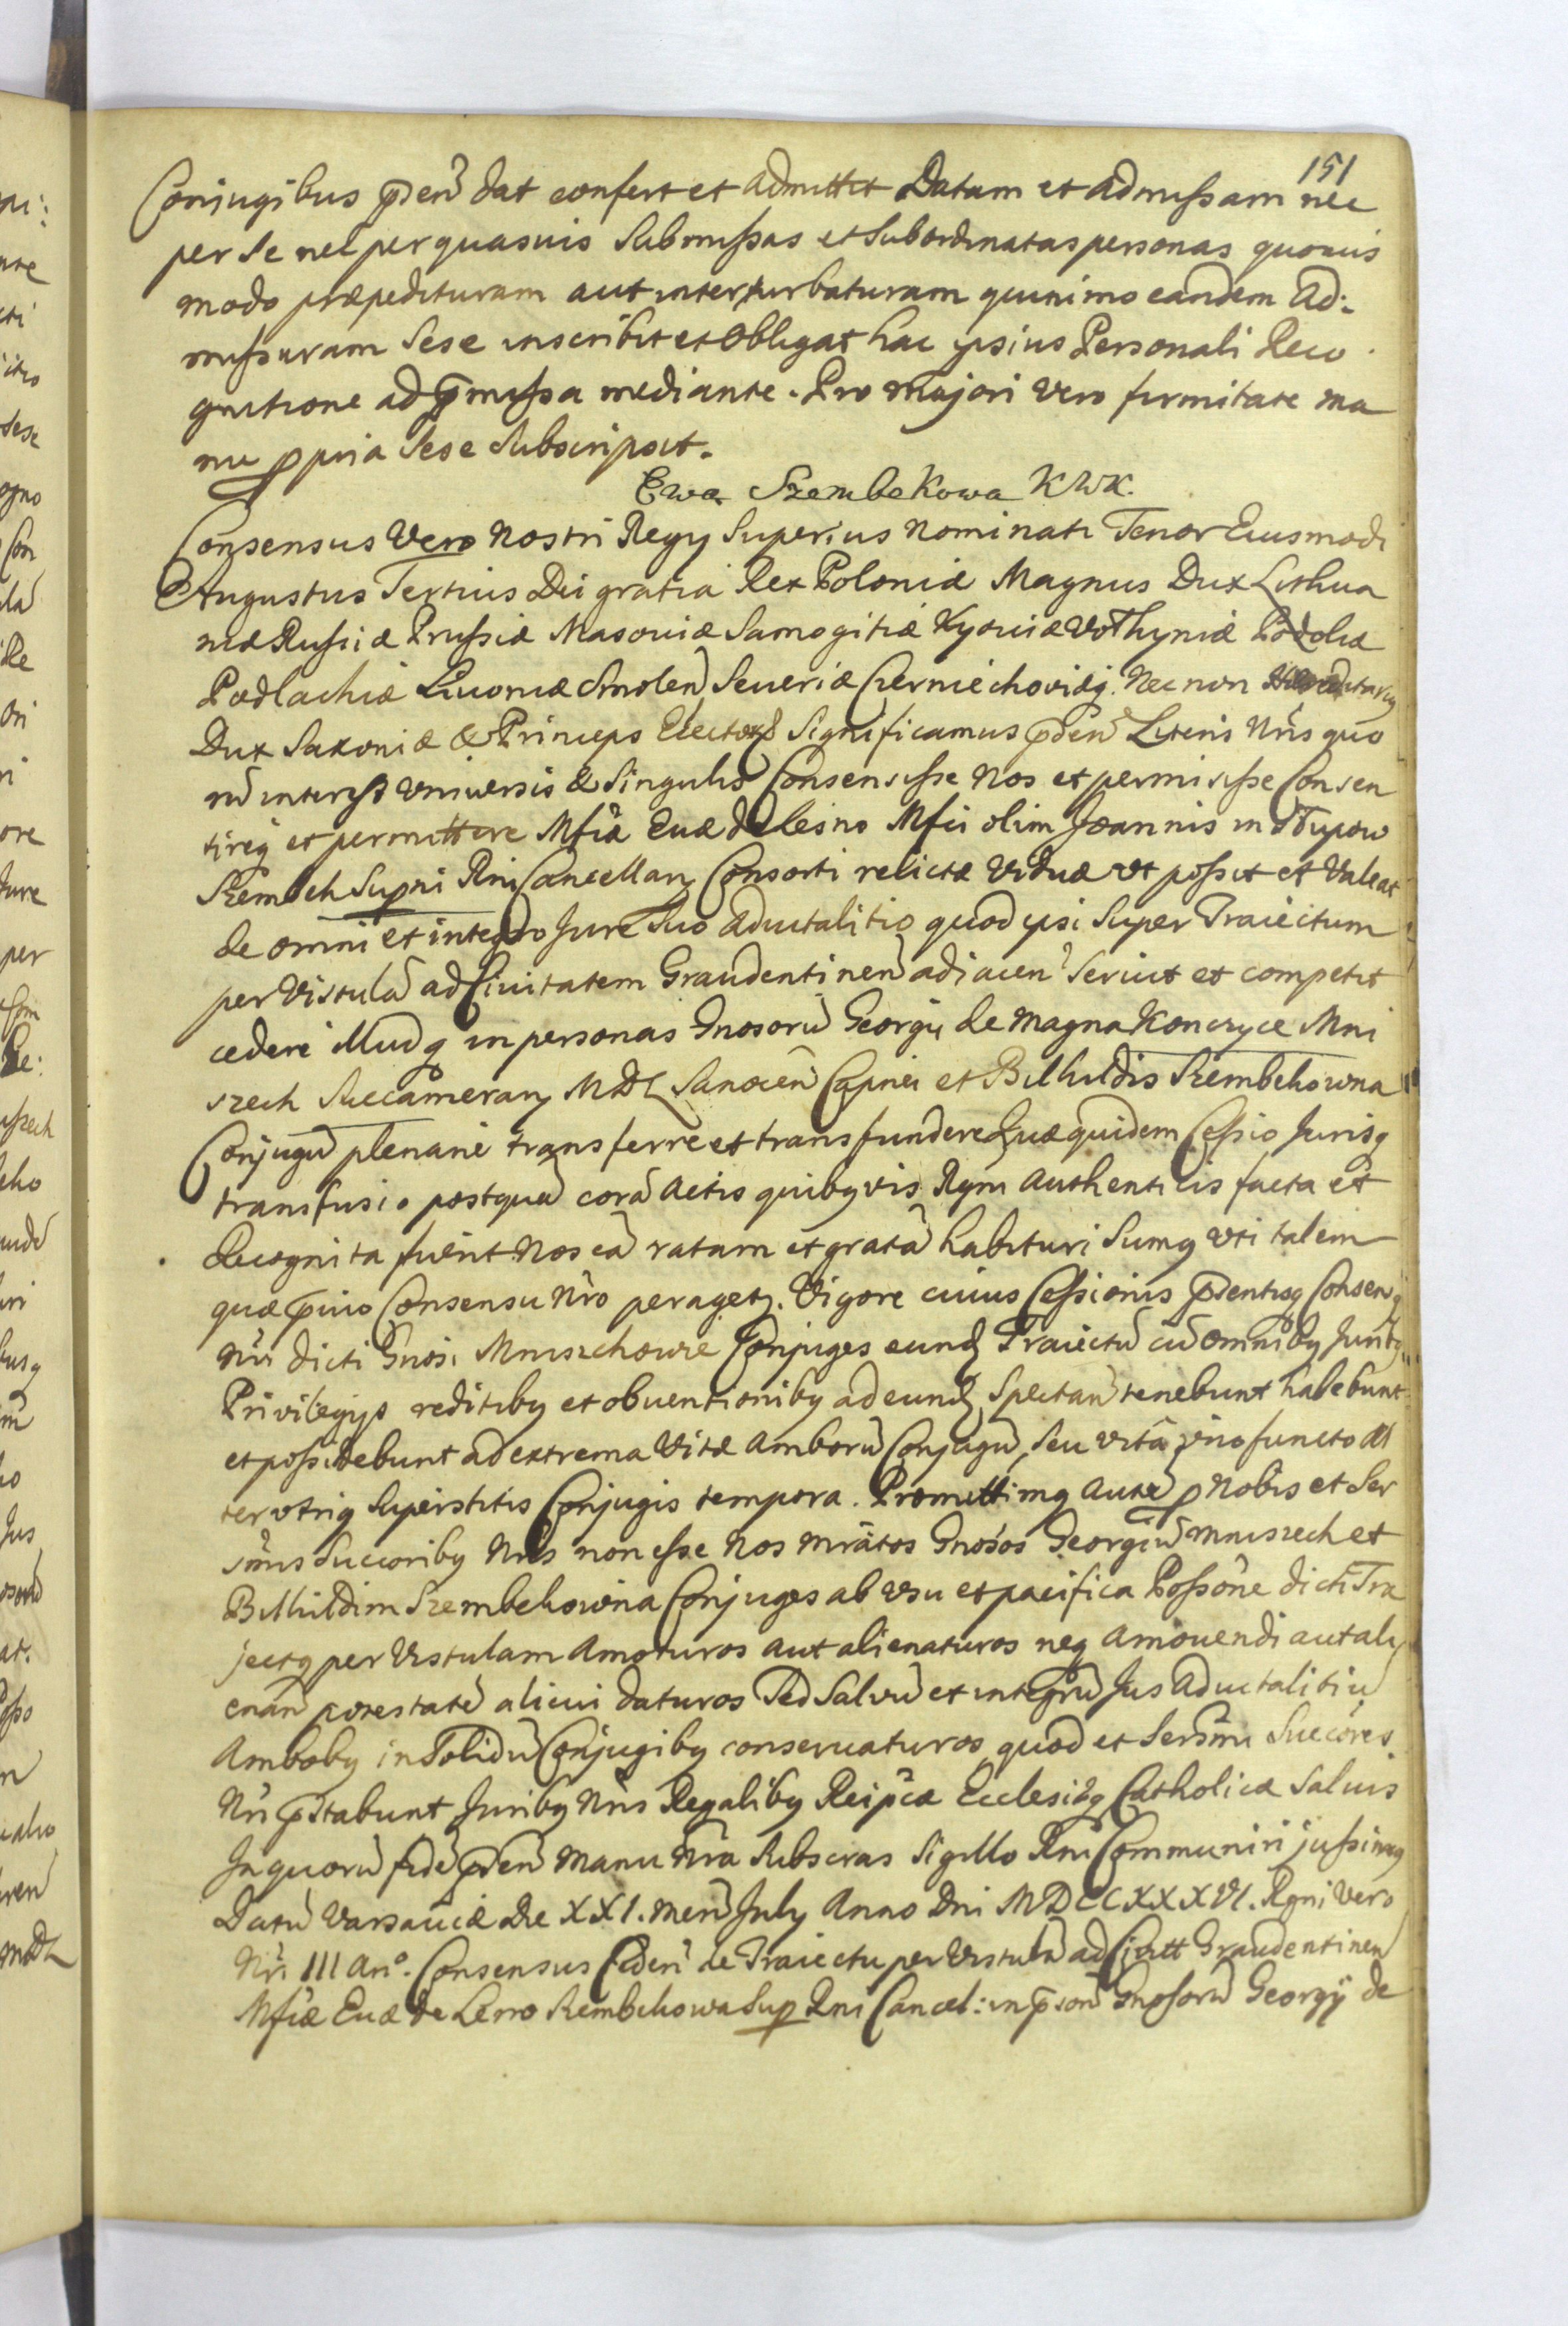 151
Conjugibus p̄den̄ dat confert et admittit Datam et admissam nec
per se vel per quasuis Submissas et Subordinatas personas quouis
modo præpedituram aut interturbaturam quinimo eandem Ad:
missuram Sese inscribit et Obligat hac ipsius Personali Reco
gnitione ad p̄missa mediante. Pro majori vero firmitate ma
nu ꝓpria Sese Subscripsit.
Ewa Szembekowa KWK.
Consensus Vero Nostri Regij Superius Nominati Tenor Eiusmodi
Augustus Tertius Dei gratia Rex Poloniæ Magnus Dux Lithua
niæ Russiæ Prussiæ Masouiæ Samogitiæ Kyouiæ Volhyniæ Podoliæ
Podlachiæ Liuoniæ Smolen̄ Seueriæ Czerniechoviæq. Nec non Hæreditarius
Dux Saxoniæ & Princeps Elector Significamus p̄den̄ Literis Nr̄is quo
rū interest Vniuersis & Singulis Consensisse Nos et permisisse Consen
tireq et permittere Mfcæ Euæ de Lesno Mfci olim Joannis in Słupow
Szembek Supr̄i Rni Cancellarij Consorti relictæ Viduæ Vt possit et Valeat
de omni et integro Jure Suo aduitalitio quod ipsi Super Traiectum
per Vistulā ad Ciuitatem Graudentinen̄ adiacen̄ Seruit et competit
cedere illudq in personas Gnosorū Georgij de Magna Konczyce Mni
szech Succamerarij MDL Sanocen̄ Capnei et Bilhildis Szembekowna
Conjugū plenarie transferre et transfundere Quæquidem Cessio Jurisq
transfusio postquā corā Actis quibusvis Rgni Authenticis facta et
Recognita fuerit Nos eā ratam et gratā habituri Sumus Vti talem
quæ p̄uio Consensu Nr̄o peragetur. Vigore cuius Cessionis p̄dentisq Consensus
Nr̄i dicti Gnosi Mniszchowie Conjuges eund Traiectū cū omnibus Juribus
Privilegijs reditibus et obuentionibus ad eund Spectan̄ tenebunt habebunt
et possidebunt ad extrema Vitæ Amborū Conjugū, Seu Vitâ Vno functo al
terutriq Superstitis Conjugis tempora. Promittimus autē ꝓ Nobis et Ser
sīmis Succorībus Nr̄is non esse Nos mr̄atos Gnosos Georgiū Mniszech et
Bilhildim Szembekowna Conjuges ab Vsu et pacifica Possōne dicti Tra
jectus per Vistulam Amoturos aut alienaturos neq Amouendi aut ali
enan̄ potestatē alicui daturos Sed Saluū et integrū Jus Aduitalitiū
Ambobus in Solidū Conjugibus conseruaturos quod et Sersm̄i Succōres
Nr̄i p̄stabunt Juribus Nr̄is Regalibus Reipcæ Ecclesiæq Catholicæ Saluis
In quorū fidē p̄den̄ Manu Nr̄a Subscras Sigillo Rni Communiri jussimus
Datū Varsauiæ Die XXI. Men̄ July Anno Dni MDCCXXXVI. Rgni Vero
Nr̄i III Anº. Consensus Ceden̄ de Traiectu per Vistulā ad Ciuitt Graudentinen̄
Mfcæ Euæ de Lesno Szembekowa Sup Rni Cancel: in p̄sonā Gnosorū Georgÿ de